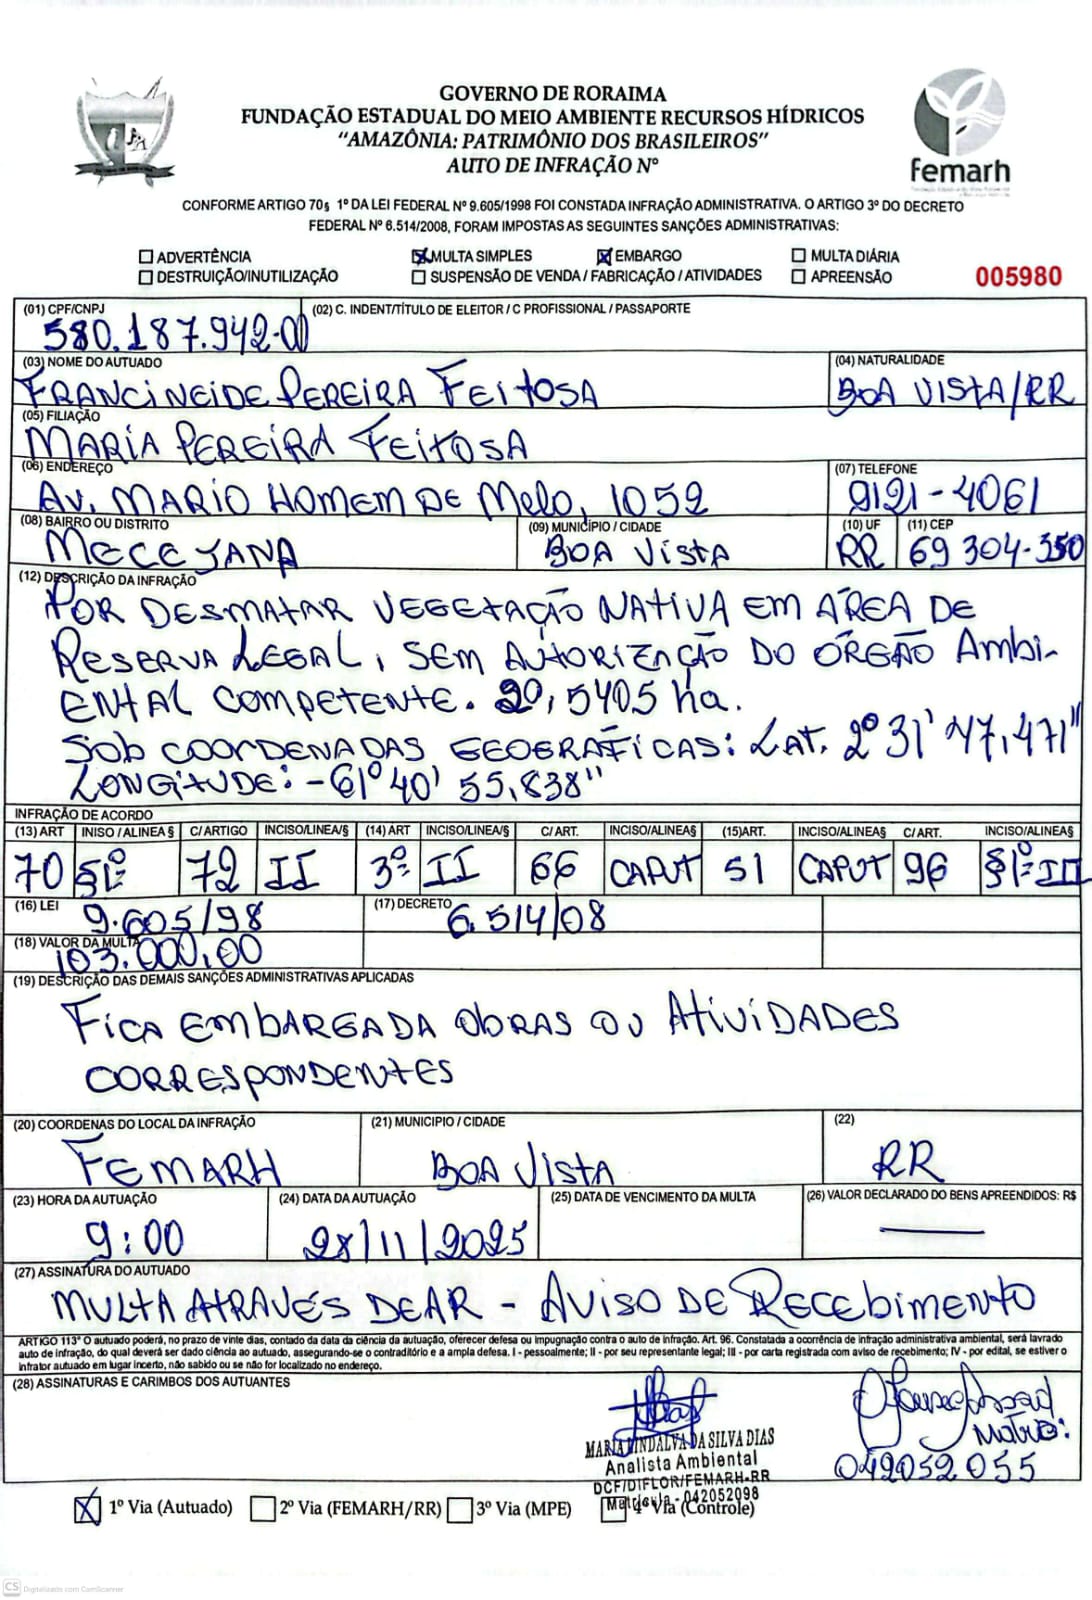 GOVERNO DE RORAIMA
FUNDAÇÃO ESTADUAL DO MEIO AMBIENTE RECURSOS HÍDRICOS
“AMAZÔNIA: PATRIMÔNIO DOS BRASILEIROS”
AUTO DE INFRAÇÃO Nº
femarh
CONFORME ARTIGO 70§ 1º DA LEI FEDERAL Nº 9.605/1998 FOI CONSTADA INFRAÇÃO ADMINISTRATIVA. O ARTIGO 3º DO DECRETO
FEDERAL Nº 6.514/2008, FORAM IMPOSTAS AS SEGUINTES SANÇÕES ADMINISTRATIVAS:
ADVERTÊNCIA MULTA SIMPLES EMBARGO MULTA DIÁRIA
DESTRUIÇÃO/INUTILIZAÇÃO SUSPENSÃO DE VENDA / FABRICAÇÃO / ATIVIDADES APREENSÃO 005980
(01) CPF/CNPJ (02) C. INDENT/TÍTULO DE ELEITOR / C PROFISSIONAL / PASSAPORTE
580.187.942-00
(03) NOME DO AUTUADO (04) NATURALIDADE
FRANCINEIDE PEREIRA FEITOSA BOA VISTA/RR
(05) FILIAÇÃO
MARIA PEREIRA FEITOSA
(06) ENDEREÇO (07) TELEFONE
Av. MARIO HOMEM DE Melo, 1052 9121-4061
(08) BAIRRO OU DISTRITO (09) MUNICÍPIO / CIDADE (10) UF (11) CEP
MECEJANA BOA VISTA RR 69 304-350
(12) DESCRIÇÃO DA INFRAÇÃO
POR DESMATAR VEGETAÇÃO NATIVA EM ÁREA DE
RESERVA LEGAL, SEM AUTORIZAÇÃO DO ÓRGÃO Ambi-
ENTAL COMPETENTE. 20,5405 ha.
SOB COORDENADAS GEOGRÁFICAS: LAT. 2º 31' 47,471"
LONGITUDE: -61º 40' 55,838"
INFRAÇÃO DE ACORDO
(13) ART INISO / ALINEA § C/ ARTIGO INCISO/LINEA/§ (14) ART INCISO/LINEA/§ C/ ART. INCISO/ALINEA§ (15)ART. INCISO/ALINEA§ C/ ART. INCISO/ALINEA§
70 §1º 72 II 3º II 66 CAPUT 51 CAPUT 96 §1º III
(16) LEI (17) DECRETO
9.605/98 6.514/08
(18) VALOR DA MULTA
103.000,00
(19) DESCRIÇÃO DAS DEMAIS SANÇÕES ADMINISTRATIVAS APLICADAS
FICA EMBARGADA OBRAS OU ATIVIDADES
CORRESPONDENTES
(20) COORDENAS DO LOCAL DA INFRAÇÃO (21) MUNICIPIO / CIDADE (22)
FEMARH BOA VISTA RR
(23) HORA DA AUTUAÇÃO (24) DATA DA AUTUAÇÃO (25) DATA DE VENCIMENTO DA MULTA (26) VALOR DECLARADO DO BENS APREENDIDOS: R$
9:00 28/11/2025
(27) ASSINATURA DO AUTUADO
MULTA ATRAVÉS DE AR - AVISO DE RECEbIMENTO
ARTIGO 113° O autuado poderá, no prazo de vinte dias, contado da data da ciência da autuação, oferecer defesa ou impugnação contra o auto de infração. Art. 96. Constatada a ocorrência de infração administrativa ambiental, será lavrado
auto de infração, do qual deverá ser dado ciência ao autuado, assegurando-se o contraditório e a ampla defesa. I - pessoalmente; II - por seu representante legal; III - por carta registrada com aviso de recebimento; IV - por edital, se estiver o
infrator autuado em lugar incerto, não sabido ou se não for localizado no endereço.
(28) ASSINATURAS E CARIMBOS DOS AUTUANTES
MARIA LINDALVA DA SILVA DIAS
Analista Ambiental
DCF/DIFLOR/FEMARH-RR
Matrícula - 042052098
042052055
1º Via (Autuado) 2º Via (FEMARH/RR) 3º Via (MPE) 4º Via (Controle)
CS Digitalizado com CamScanner